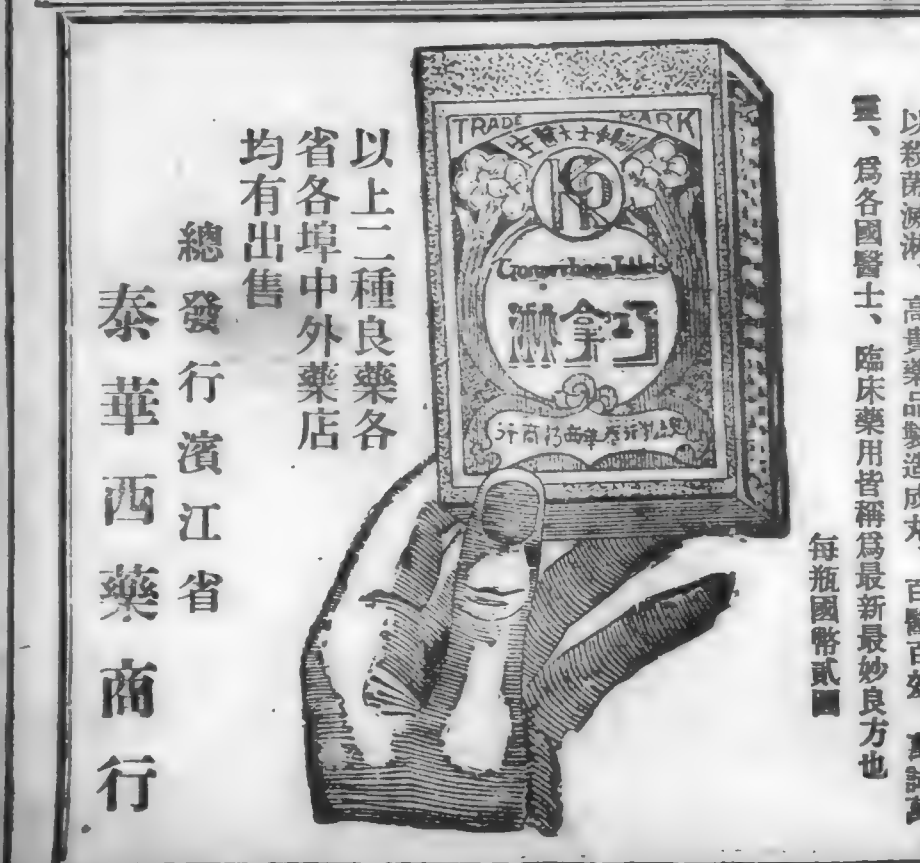 以殺菌 高貴藥品製造成 百醫百效
靈、爲各國醫士、臨床藥用皆稱爲最新最妙良方也
每瓶國幣貳圓
TRADE MARK
士醫生
Gonorrhoea Tablets
巧拿淋
行商葯西華泰行
以上二種良藥各
省各埠中外藥店
均有出售
總發行濱江省
泰華西藥商行